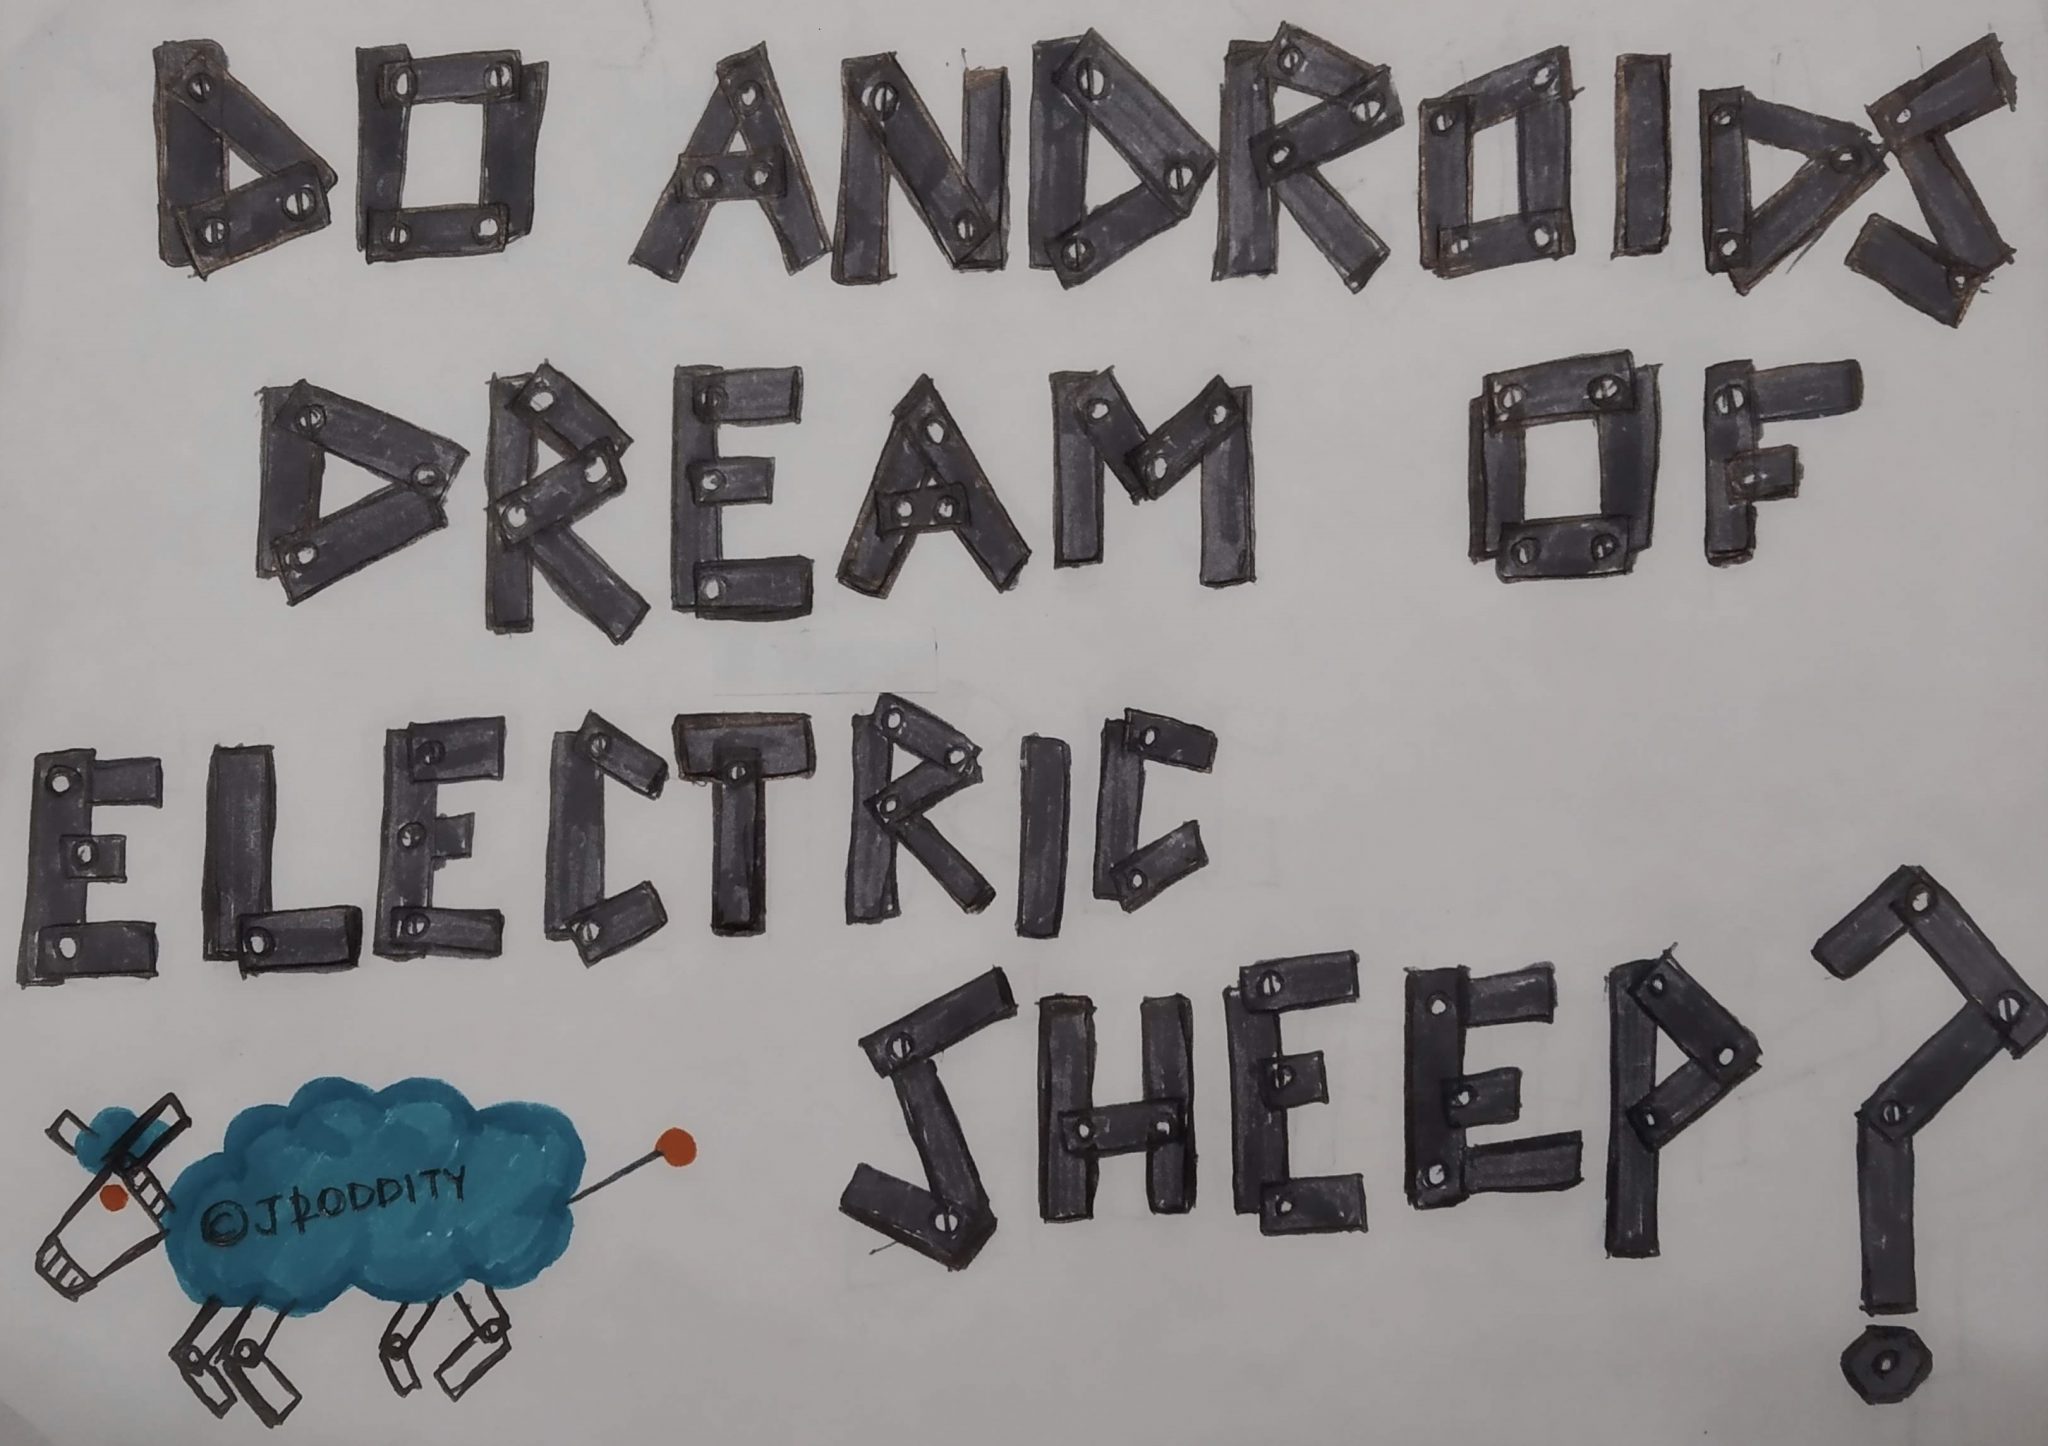 DO ANDROIDS
DREAM OF
ELECTRIC
SHEEP?
©JRODDITY